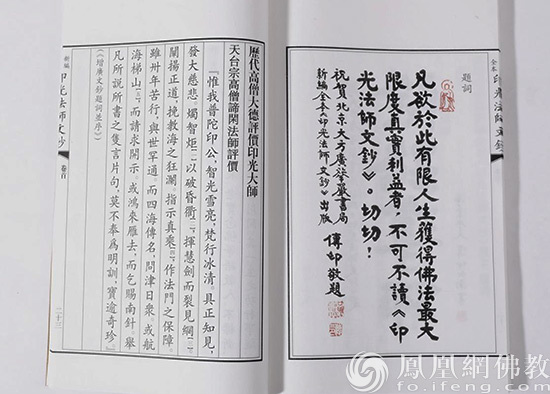 全本 印光法師文鈔
題詞
凡欲於此有限人生獲得佛法最大
限度真實利益者，不可不讀《印
光法師文鈔》。切切！
祝賀北京大方廣華嚴書局
新編全本《印光法師文鈔》出版
傳印敬題
歷代高僧大德評價印光大師
天台宗高僧諦閑法師評價
『惟我普陀印公，智光雪亮，梵行冰清。具正知見，
發大慈悲，燭智炬以破昏衢，揮慧劍而裂見網。
闡揚正道，挽教海之狂瀾。指示真乘，作法門之保障。
雖卅年苦行，與世罕通，而四海傳名，問津日眾，或航
海梯山，而請求開示，或鴻來雁去，而乞賜南針，舉
凡所說所書之隻言片句，莫不奉為明訓，寶逾奇珍』
（《增廣文鈔題詞並序》）
新編 印光法師文鈔 卷首 二十三
鳳凰網佛教
fo.ifeng.com